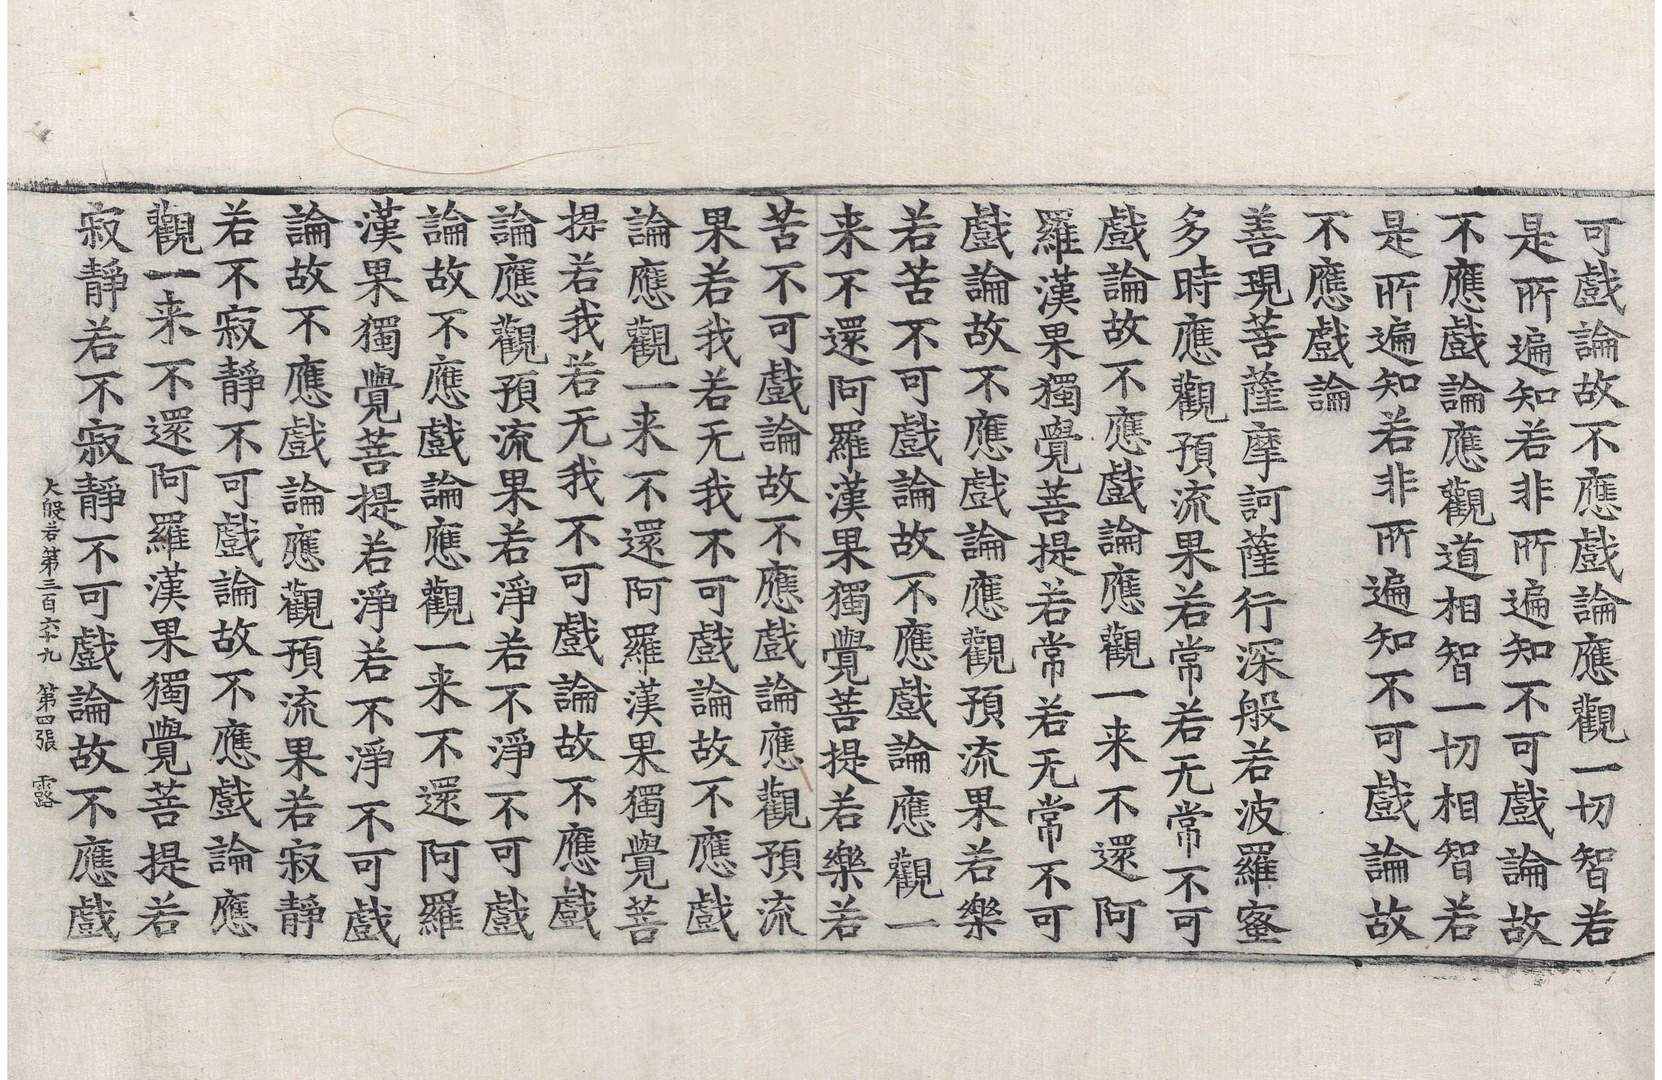 可戲論故不應戲論應觀一切智若
是所遍知若非所遍知不可戲論故
不應戲論應觀道相智一切相智若
是所遍知若非所遍知不可戲論故
不應戲論
善現菩薩摩訶薩行深般若波羅蜜
多時應觀預流果若常若无常不可
戲論故不應戲論應觀一来不還阿
羅漢果獨覺菩提若常若无常不可
戲論故不應戲論應觀預流果若樂
若苦不可戲論故不應戲論應觀一
来不還阿羅漢果獨覺菩提若樂若
苦不可戲論故不應戲論應觀預流
果若我若无我不可戲論故不應戲
論應觀一来不還阿羅漢果獨覺菩
提若我若无我不可戲論故不應戲
論應觀預流果若淨若不淨不可戲
論故不應戲論應觀一来不還阿羅
漢果獨覺菩提若淨若不淨不可戲
論故不應戲論應觀預流果若寂靜
若不寂靜不可戲論故不應戲論應
觀一来不還阿羅漢果獨覺菩提若
寂靜若不寂靜不可戲論故不應戲
大般若第三百六十九 第四張 露